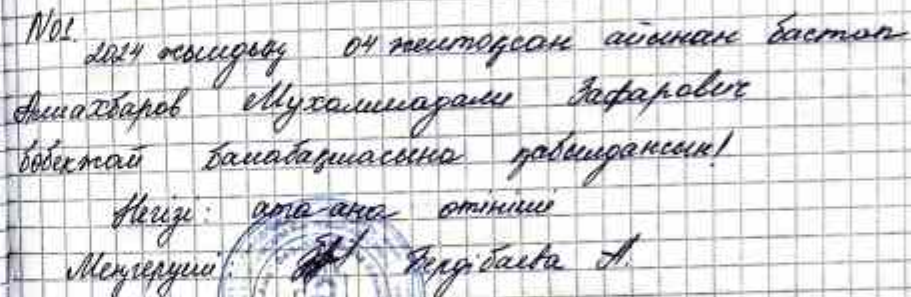 №01.
2024 жылдың 04 желтоқсан айынан бастап
Алиахбаров Мухаммадали Зафарович
бөбекжай балабақшасына қабылдансын!
Негізі: ата-ана өтініші
Меңгеруші: Бердібаева А.